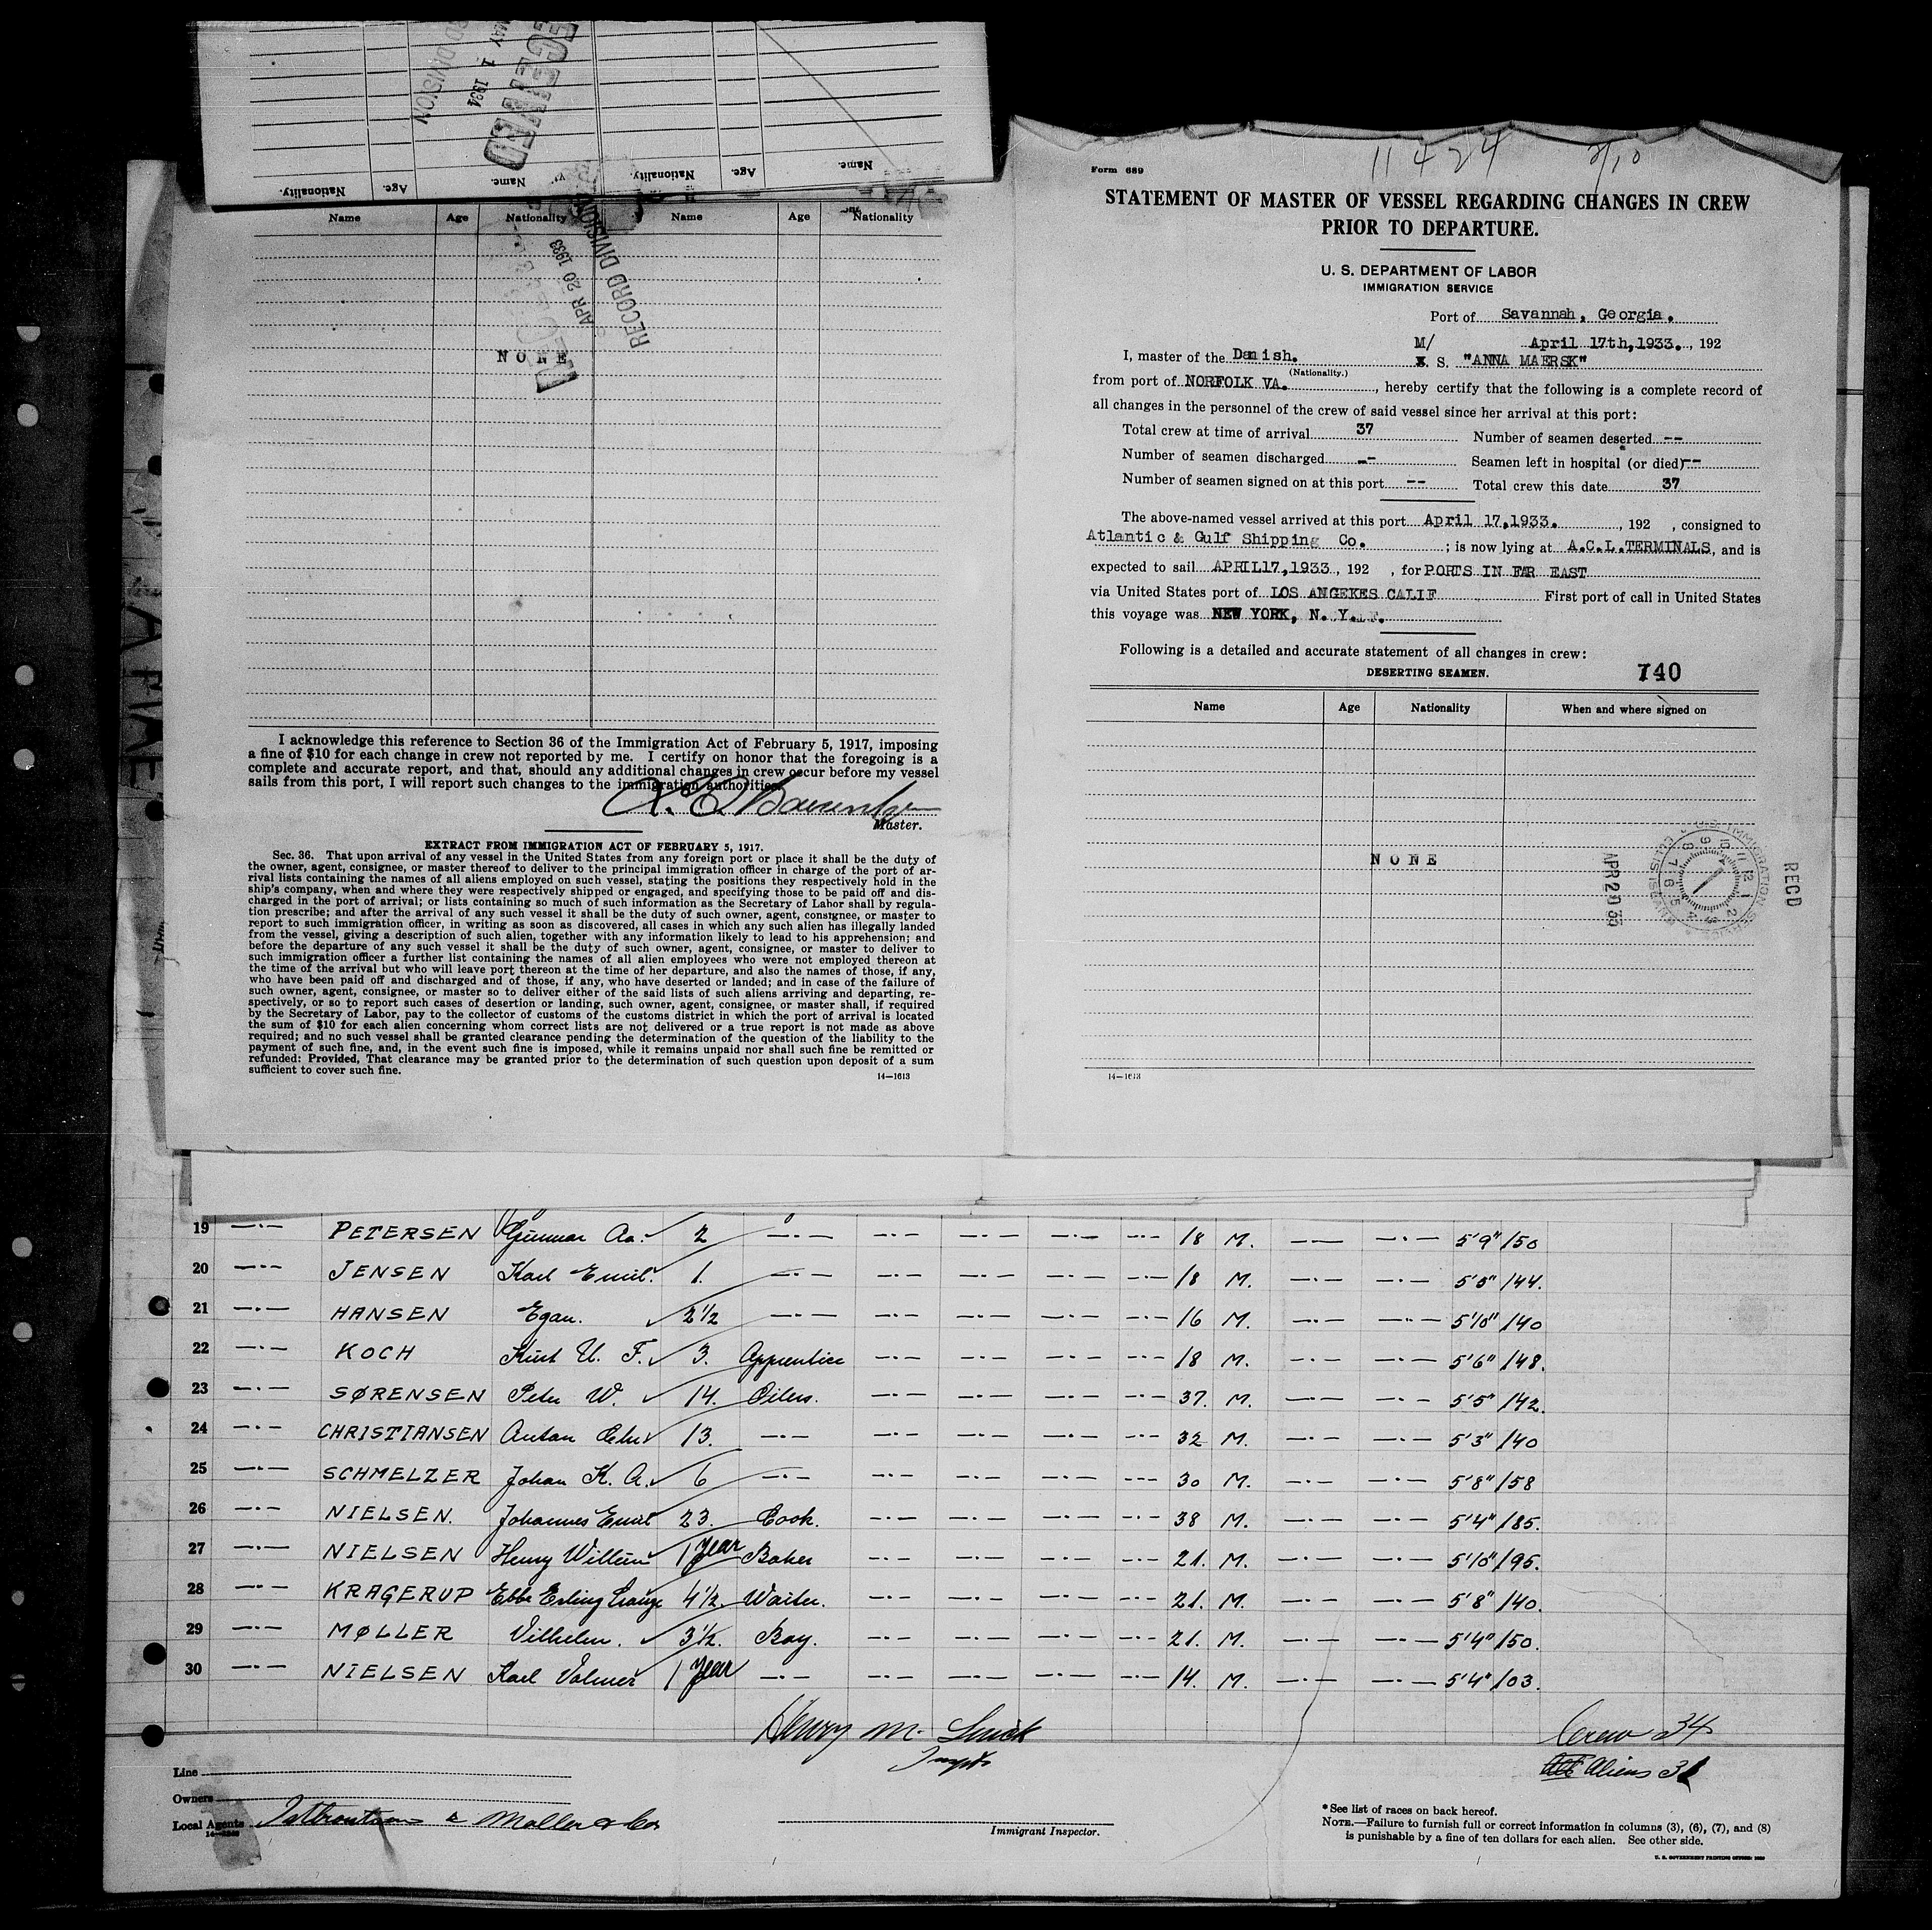 RECEIVED
MAY 1 1934
RD DIVISION
Name. Age. Nationality. Name. Age. Nationality.
Name Age Nationality Name Age Nationality
APR 20 1933
RECORD DIVISION
NONE
I acknowledge this reference to Section 36 of the Immigration Act of February 5, 1917, imposing
a fine of $10 for each change in crew not reported by me. I certify on honor that the foregoing is a
complete and accurate report, and that, should any additional changes in crew occur before my vessel
sails from this port, I will report such changes to the immigration authorities.
Master.
EXTRACT FROM IMMIGRATION ACT OF FEBRUARY 5, 1917.
Sec. 36. That upon arrival of any vessel in the United States from any foreign port or place it shall be the duty of
the owner, agent, consignee, or master thereof to deliver to the principal immigration officer in charge of the port of ar-
rival lists containing the names of all aliens employed on such vessel, stating the positions they respectively hold in the
ship's company, when and where they were respectively shipped or engaged, and specifying those to be paid off and dis-
charged in the port of arrival; or lists containing so much of such information as the Secretary of Labor shall by regula-
tion prescribe; and after the arrival of any such vessel it shall be the duty of such owner, agent, consignee, or master to
report to such immigration officer, in writing as soon as discovered, all cases in which any such alien has illegally landed
from the vessel, giving a description of such alien, together with any information likely to lead to his apprehension; and
before the departure of any such vessel it shall be the duty of such owner, agent, consignee, or master to deliver to
such immigration officer a further list containing the names of all alien employees who were not employed thereon at
the time of the arrival but who will leave port thereon at the time of her departure, and also the names of those, if any,
who have been paid off and discharged and of those, if any, who have deserted or landed; and in case of the failure of
such owner, agent, consignee, or master so to deliver either of the said lists of such aliens arriving and departing, re-
spectively, or so to report such cases of desertion or landing, such owner, agent, consignee, or master shall, if required
by the Secretary of Labor, pay to the collector of customs of the customs district in which the port of arrival is located
the sum of $10 for each alien concerning whom correct lists are not delivered or a true report is not made as above
required; and no such vessel shall be granted clearance pending the determination of the question of the liability to the
payment of such fine, and, in the event such fine is imposed, while it remains unpaid nor shall such fine be remitted or
refunded: Provided, That clearance may be granted prior to the determination of such question upon deposit of a sum
sufficient to cover such fine.
14—1613
11424
Form 689
STATEMENT OF MASTER OF VESSEL REGARDING CHANGES IN CREW
PRIOR TO DEPARTURE.
U. S. DEPARTMENT OF LABOR
IMMIGRATION SERVICE
Port of Savannah, Georgia.
April 17th,1933., 192
I, master of the Danish. M/ S. "ANNA MAERSK"
(Nationality.)
from port of NORFOLK VA. , hereby certify that the following is a complete record of
all changes in the personnel of the crew of said vessel since her arrival at this port:
Total crew at time of arrival 37 Number of seamen deserted --
Number of seamen discharged -- Seamen left in hospital (or died) --
Number of seamen signed on at this port -- Total crew this date 37
The above-named vessel arrived at this port April 17,1933. , 192 , consigned to
Atlantic & Gulf Shipping Co. ; is now lying at A.C.L.TERMINALS, and is
expected to sail APRIL17,1933 , 192 , for PORTS IN FAR EAST
via United States port of LOS ANGEKES CALIF First port of call in United States
this voyage was NEW YORK, N. Y.
Following is a detailed and accurate statement of all changes in crew:
DESERTING SEAMEN. 740
Name Age Nationality When and where signed on
NONE
APR 20 33
RECD
14—1613
19 —·— PETERSEN Gunnar Aa. 2 —·— —·— —·— —·— —·— 18 M. —·— —·— 5'9" 150
20 —·— JENSEN Karl Emil. 1. —·— —·— —·— —·— —·— 18 M. —·— —·— 144.
21 —·— HANSEN Egan. 2½ —·— —·— —·— —·— —·— 16 M. —·— —·— 5'10" 140
22 —·— KOCH Kurt U. F. 3. Apprentice —·— —·— —·— —·— 18 M. —·— —·— 5'6" 148.
23 —·— SØRENSEN Peter W. 14. Oilers. —·— —·— —·— —·— 37. M. —·— —·— 5'5" 142.
24 —·— CHRISTIANSEN Anton 13. —·— —·— —·— —·— —·— 32 M. —·— —·— 5'3" 140
25 —·— SCHMELZER Johan K. A. 6 —·— —·— —·— —·— —·— 30 M. —·— —·— 5'8" 158
26 —·— NIELSEN. Johannes Emil 23. Cook. —·— —·— —·— —·— 38 M. —·— —·— 5'4" 185.
27 —·— NIELSEN Henry Willum 1 year Baker —·— —·— —·— —·— 21. M. —·— —·— 5'10" 195.
28 —·— KRAGERUP Ebbe Erling 4½. Waiter. —·— —·— —·— —·— 21. M. —·— —·— 5'8" 140.
29 —·— MØLLER Vilhelm. 3½. Boy. —·— —·— —·— —·— 21. M. —·— —·— 5'4" 150.
30 —·— NIELSEN Karl Valmer 1 year —·— —·— —·— —·— —·— 14. M. —·— —·— 5'4" 103.
Henry M. Crew 34
Aliens 31
Line
Owners
Local Agents & Moller & Co
Immigrant Inspector.
*See list of races on back hereof.
NOTE.—Failure to furnish full or correct information in columns (3), (6), (7), and (8)
is punishable by a fine of ten dollars for each alien. See other side.